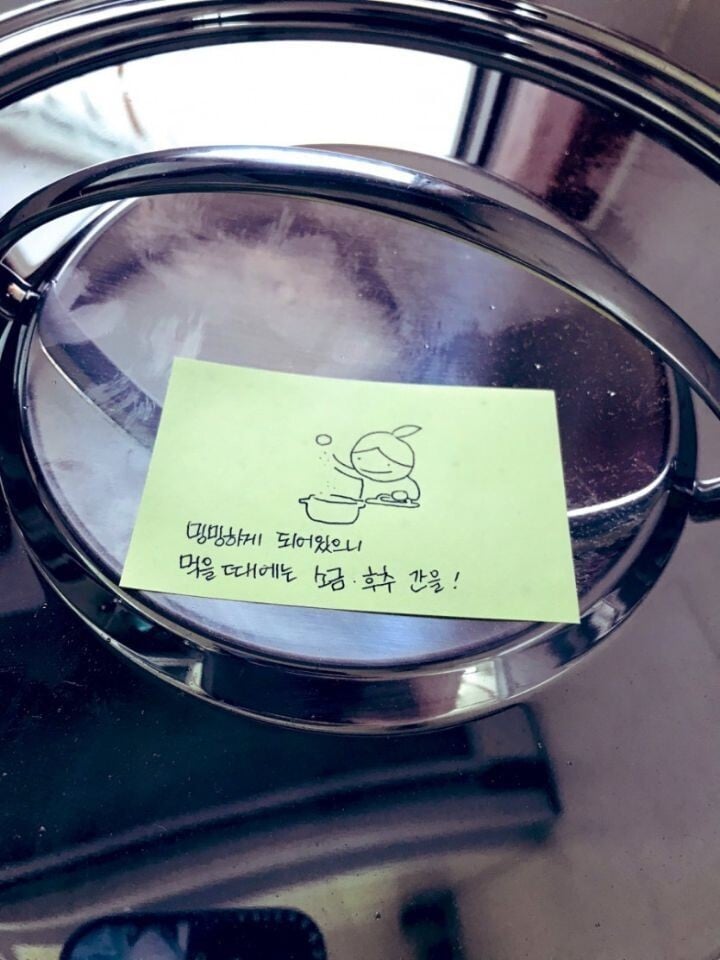 밍밍하게 되어있으니
먹을 때에는 소금·후추 간을!